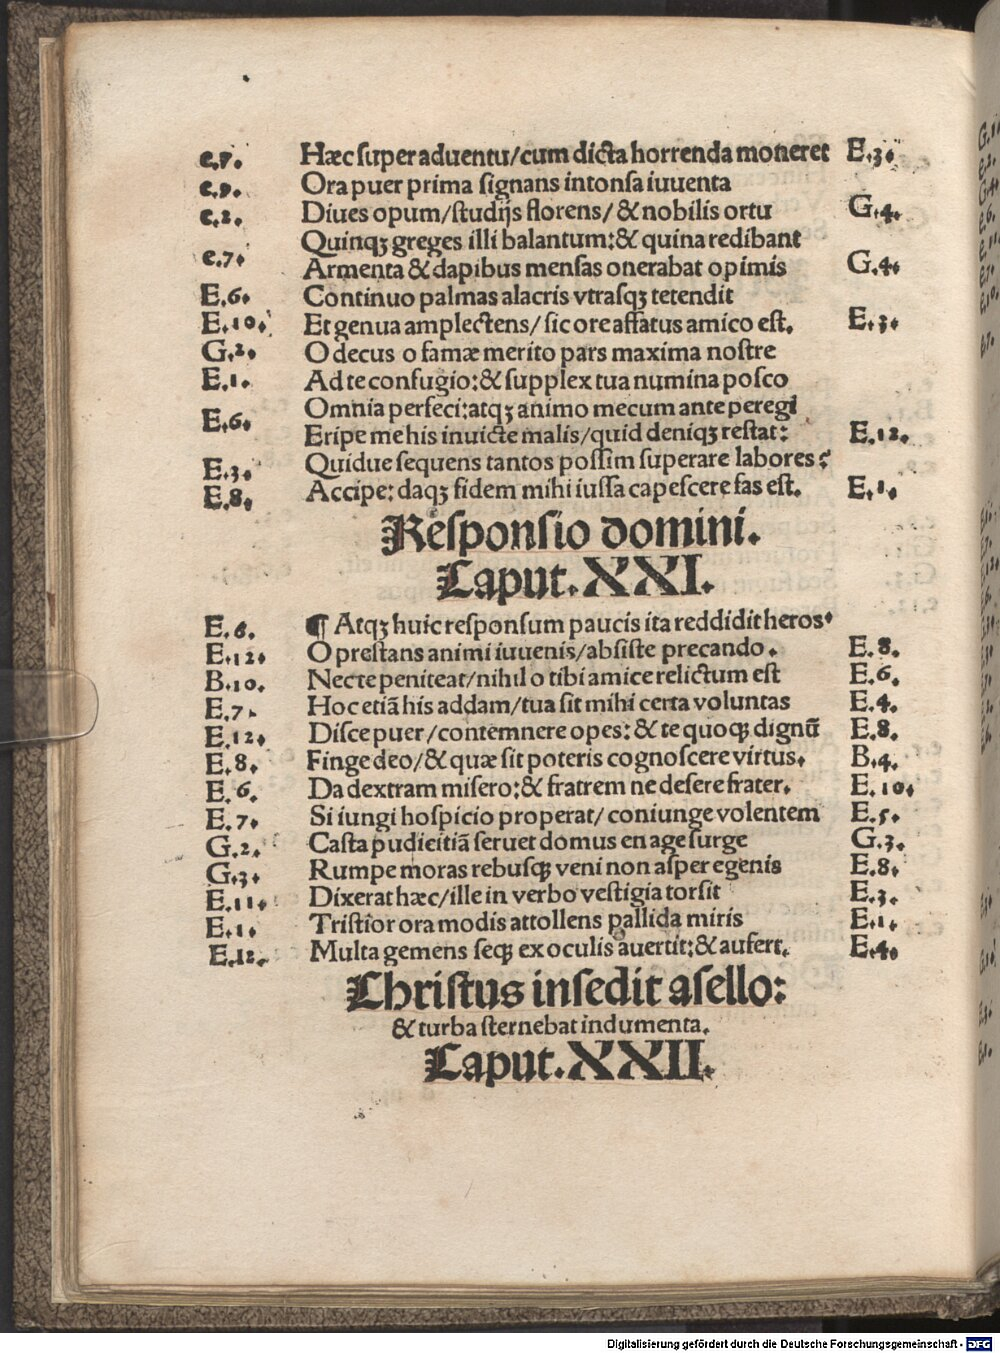 e.7. Hæc super aduentu/cum dicta horrenda moneret E.3.
e.9. Ora puer prima signans intonsa iuuenta
e.2. Diues opum/studijs florens/&nobilis ortu G.4.
Quinqꝫ greges illi balantum:& quina redibant
e.7. Armenta & dapibus mensas onerabat opimis G.4.
E.6. Continuo palmas alacris vtrasqꝫ tetendit
E.10. Et genua amplectens/sic ore affatus amico est. E.3.
G.2. O decus o famæ merito pars maxima nostre
E.1. Ad te confugio:& supplex tua numina posco
E.6. Omnia perfeci:atqꝫ animo mecum ante peregi
Eripe me his inuicte malis/quid deniqꝫ restat: E.12.
E.3. Quidue sequens tantos possim superare labores?
E.8. Accipe:daqꝫ fidem mihi iussa capescere fas est. E.1.
Responsio domini.
Caput.XXI.
E.6. ¶ Atqꝫ huic responsum paucis ita reddidit heros.
E.12. O prestans animi iuuenis/absiste precando. E.8.
B.10. Nec te peniteat/nihil o tibi amice relictum est E.6.
E.7. Hoc etiã his addam/tua sit mihi certa voluntas E.4.
E.12. Disce puer/contemnere opes:& te quoqꝫ dignũ E.8.
E.8. Finge deo/& quæ sit poteris cognoscere virtus. B.4.
E.6. Da dextram misero:& fratrem ne desere frater. E.10.
E.7. Si iungi hospicio properat/coniunge volentem E.5.
G.2. Casta pudicitiã seruet domus en age surge G.3.
G.3. Rumpe moras rebusqꝫ veni non asper egenis E.8.
E.11. Dixerat hæc/ille in verbo vestigia torsit E.3.
E.1. Tristior ora modis attollens pallida miris E.1.
E.12. Multa gemens seqꝫ ex oculis auertit:& aufert. E.4.
Christus insedit asello:
& turba sternebat indumenta.
Caput.XXII.
Digitalisierung gefördert durch die Deutsche Forschungsgemeinschaft - DFG